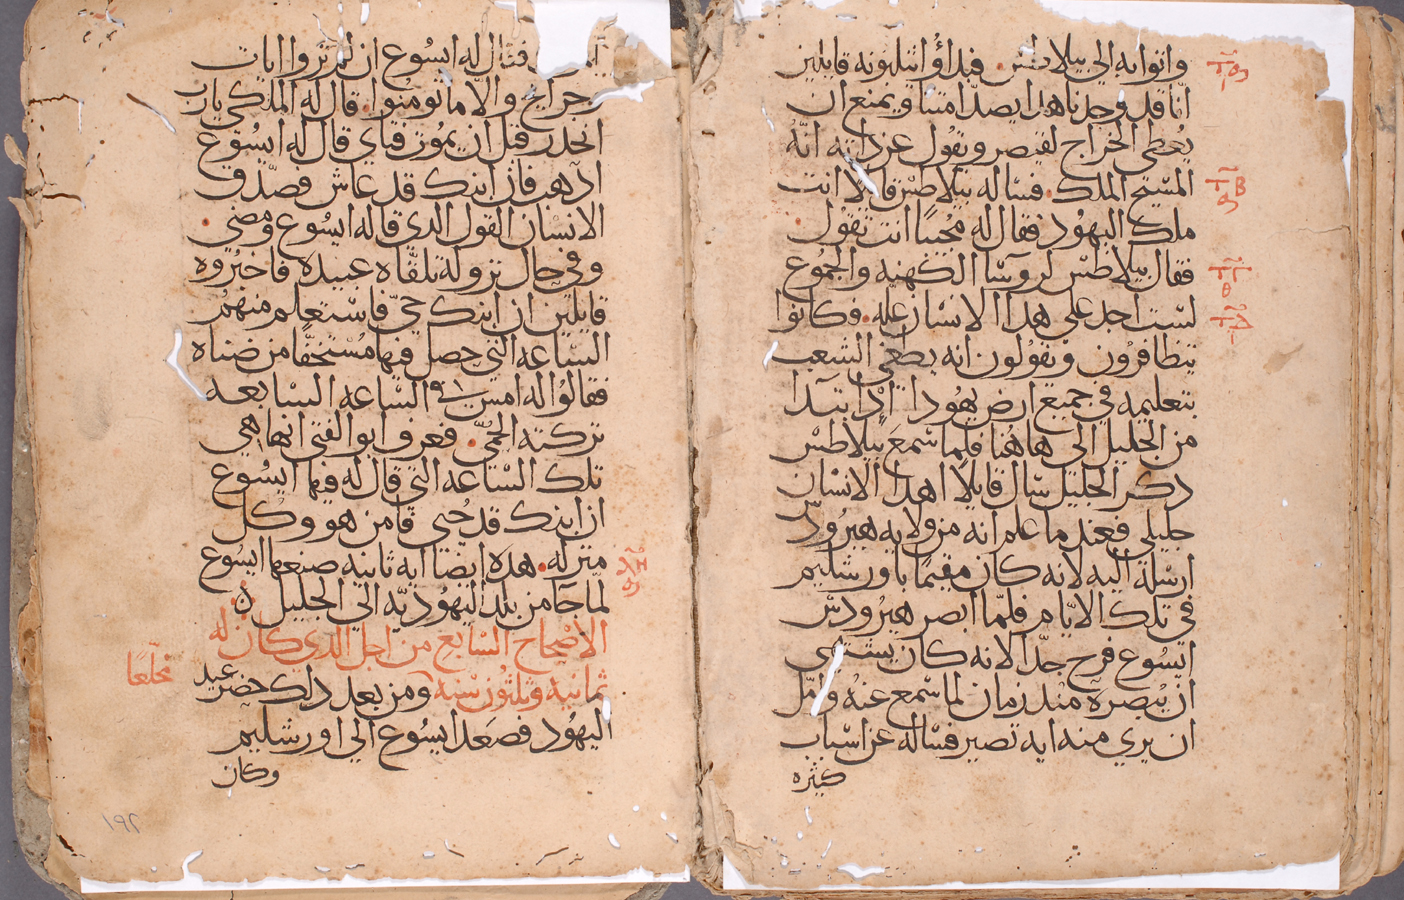 واتوا به الي بيلاطس. فبداوا يتلبونه قايلين
انا قد وجدنا هذا يصد امتنا ويمنع ان
يُعطي الخراج لقيصر ويقول عن ذاته انه
المسيح الملك. فساله بيلاطس قايلا انت
ملك اليهُود فقال له مُجيبًا انت تقول.
فقال بيلاطس لروسا الكهنه والجموع
لست اجد على هذا الانسان عله. وكانوا
يتظافرون ويقولون انه يطغي الشعب
بتعليمه في جميع ارض يهُودا اذ ابتدا
من الجليل الى هاهُنا فلما سمعَ بيلاطس
ذكر الجليل سال قايلًا اهذا الانسان
جليلي فعند ما علم انه من ولايه هيرُودس
ارسله اليه لانه كان مقيمًا باورشليم
في تلك الايّام فلمّا ابصر هيرُودس
ايسُوع فرح جدّا لانه كان يشتهي
ان يُبصره منذ زمان لما سمع عنهُ وامّل
ان يري منه ايه تصير فساله عن اسباب
كثيره
فقال له ايسُوع ان لم تروا ايات
وجرايح والا ما تومنُوا. قال له الملكي يارب
انحدر قبل ان يموت فتاي قال له ايسُوع
اذهب فان ابنك قد عاش فصدّق
الانسان القول الذي قاله ايسُوع ومضي.
وفي حال نزوله تلقّاه عبيده فاخبرُوه
قايلين ان ابنك حيّ فاستعلم منهُم
الساعه التي حصل فيها مُستخفًّا من ضناه
فقالُوا له امس في السّاعه السابعه
تركته الحمّى. فعرف ابو الفتي انها هي
تلك السّاعه التي قال له فيها ايسُوع
ان ابنك قد حُيي فامن هو وكل
منزله. هذه ايضا ايه ثانيه صنعها ايسُوع
لمّا جا من بلد اليهُوديّه الي الجليل
الاصْحاح السابع من اجل الذي كان له
ثمانيه وثلثُون سنه ومن بعد ذلك حضر عيد
مخلّعًا
اليهُود فصَعد ايسُوع الي اورشليم
وكان
١٩٢